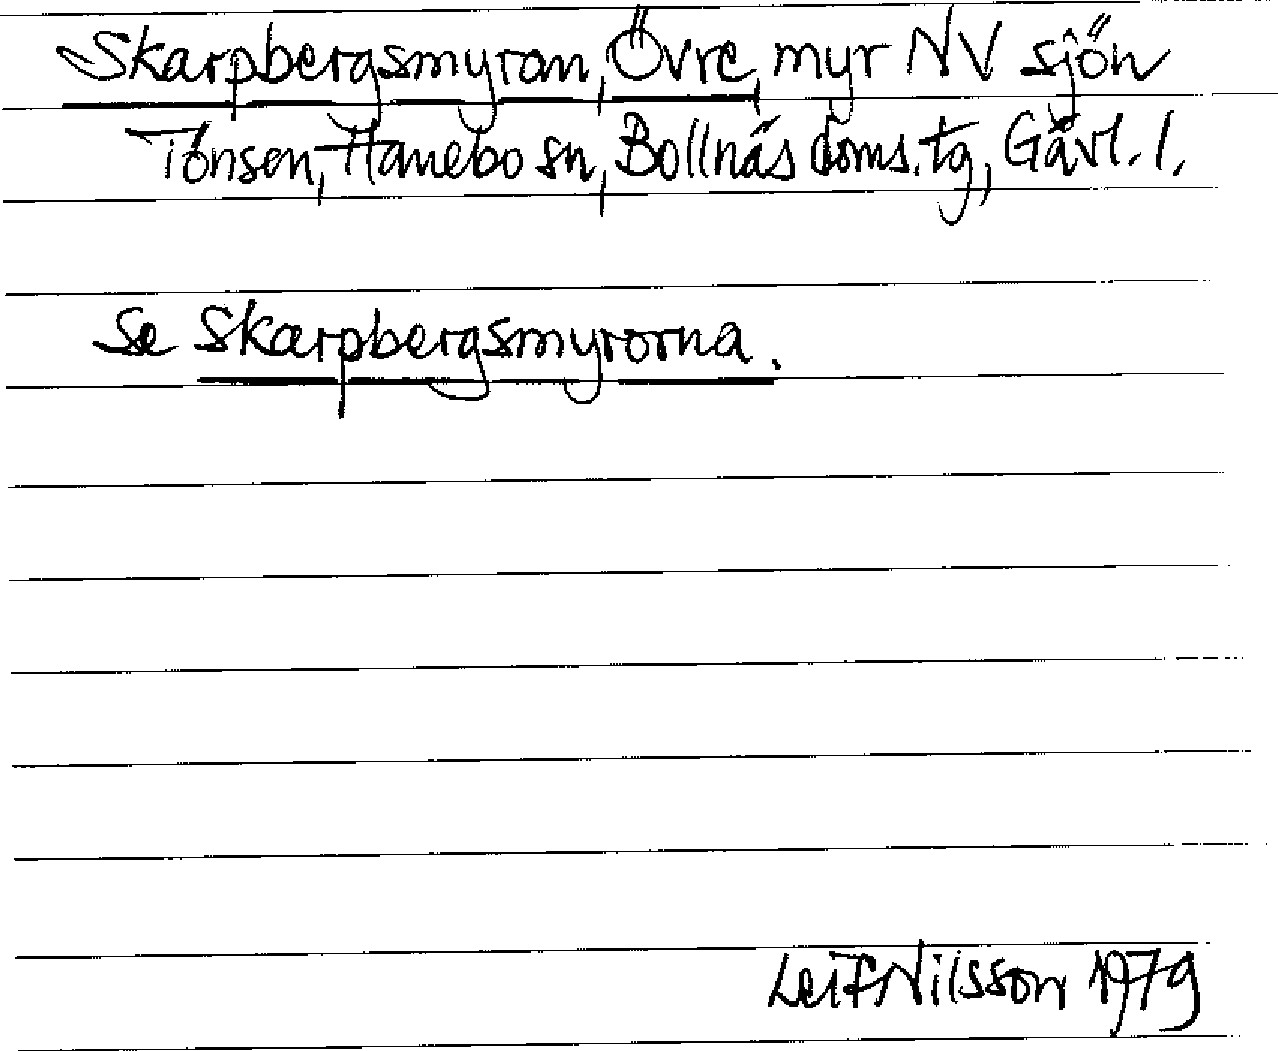 Skarpbergsmyran, Övre, myr NV sjön
Tönsen, Hanebo sn, Bollnäs doms. tg, Gävl. l.
Se Skarpbergsmyrorna.
Leif Nilsson 1979